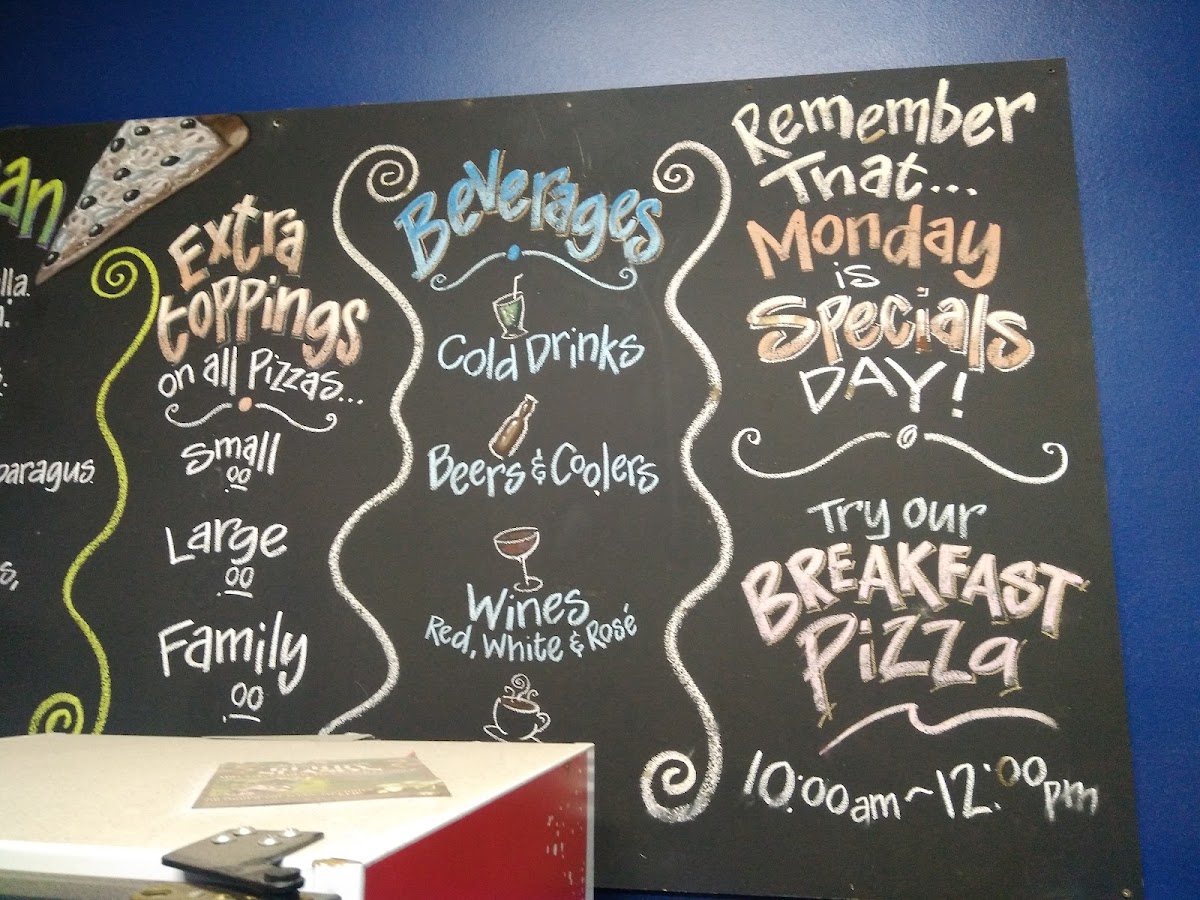 an
lla.
paragus
s,
Extra
toppings
on all Pizzas...
Small
00
Large
00
Family
00
Beverages
Cold Drinks
Beers & Coolers
Wines
Red, White & Rosé
Remember
That...
Monday
is
Specials
DAY!
Try our
BREAKFAST
Pizza
10:00am~12:00pm